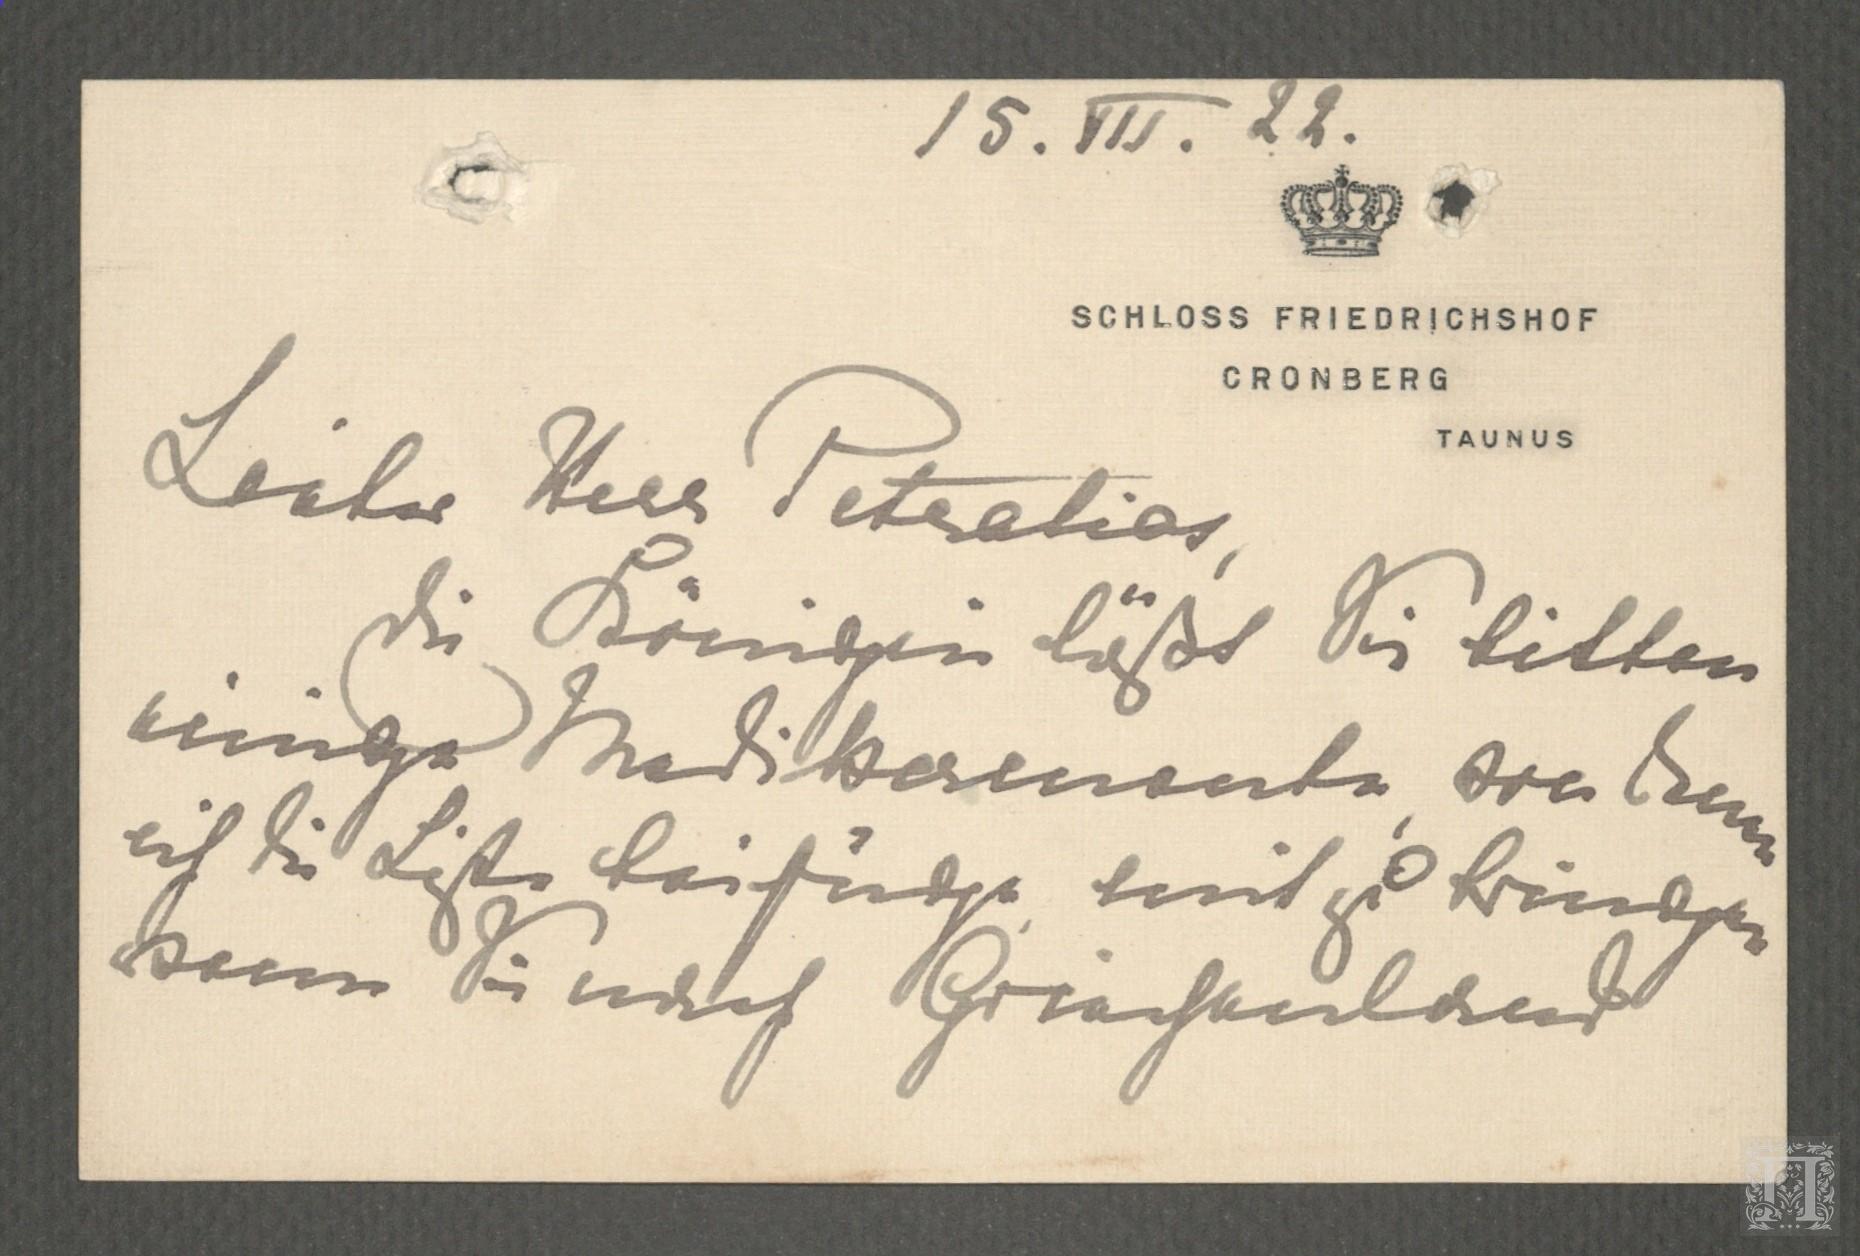 15. VII. 22.
SCHLOSS FRIEDRICHSHOF
CRONBERG
TAUNUS
Lieber Herr Petralias,
die Königin läßt Sie bitten
einige Medikamente, von denen
ich die Liste beifüge, mit zu bringen
wenn Sie nach Griechenland